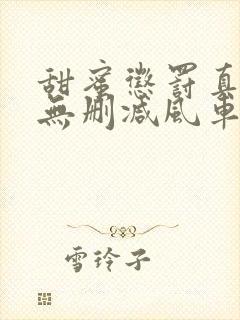 甜蜜懲罰真
無刪減風車
雪玲子